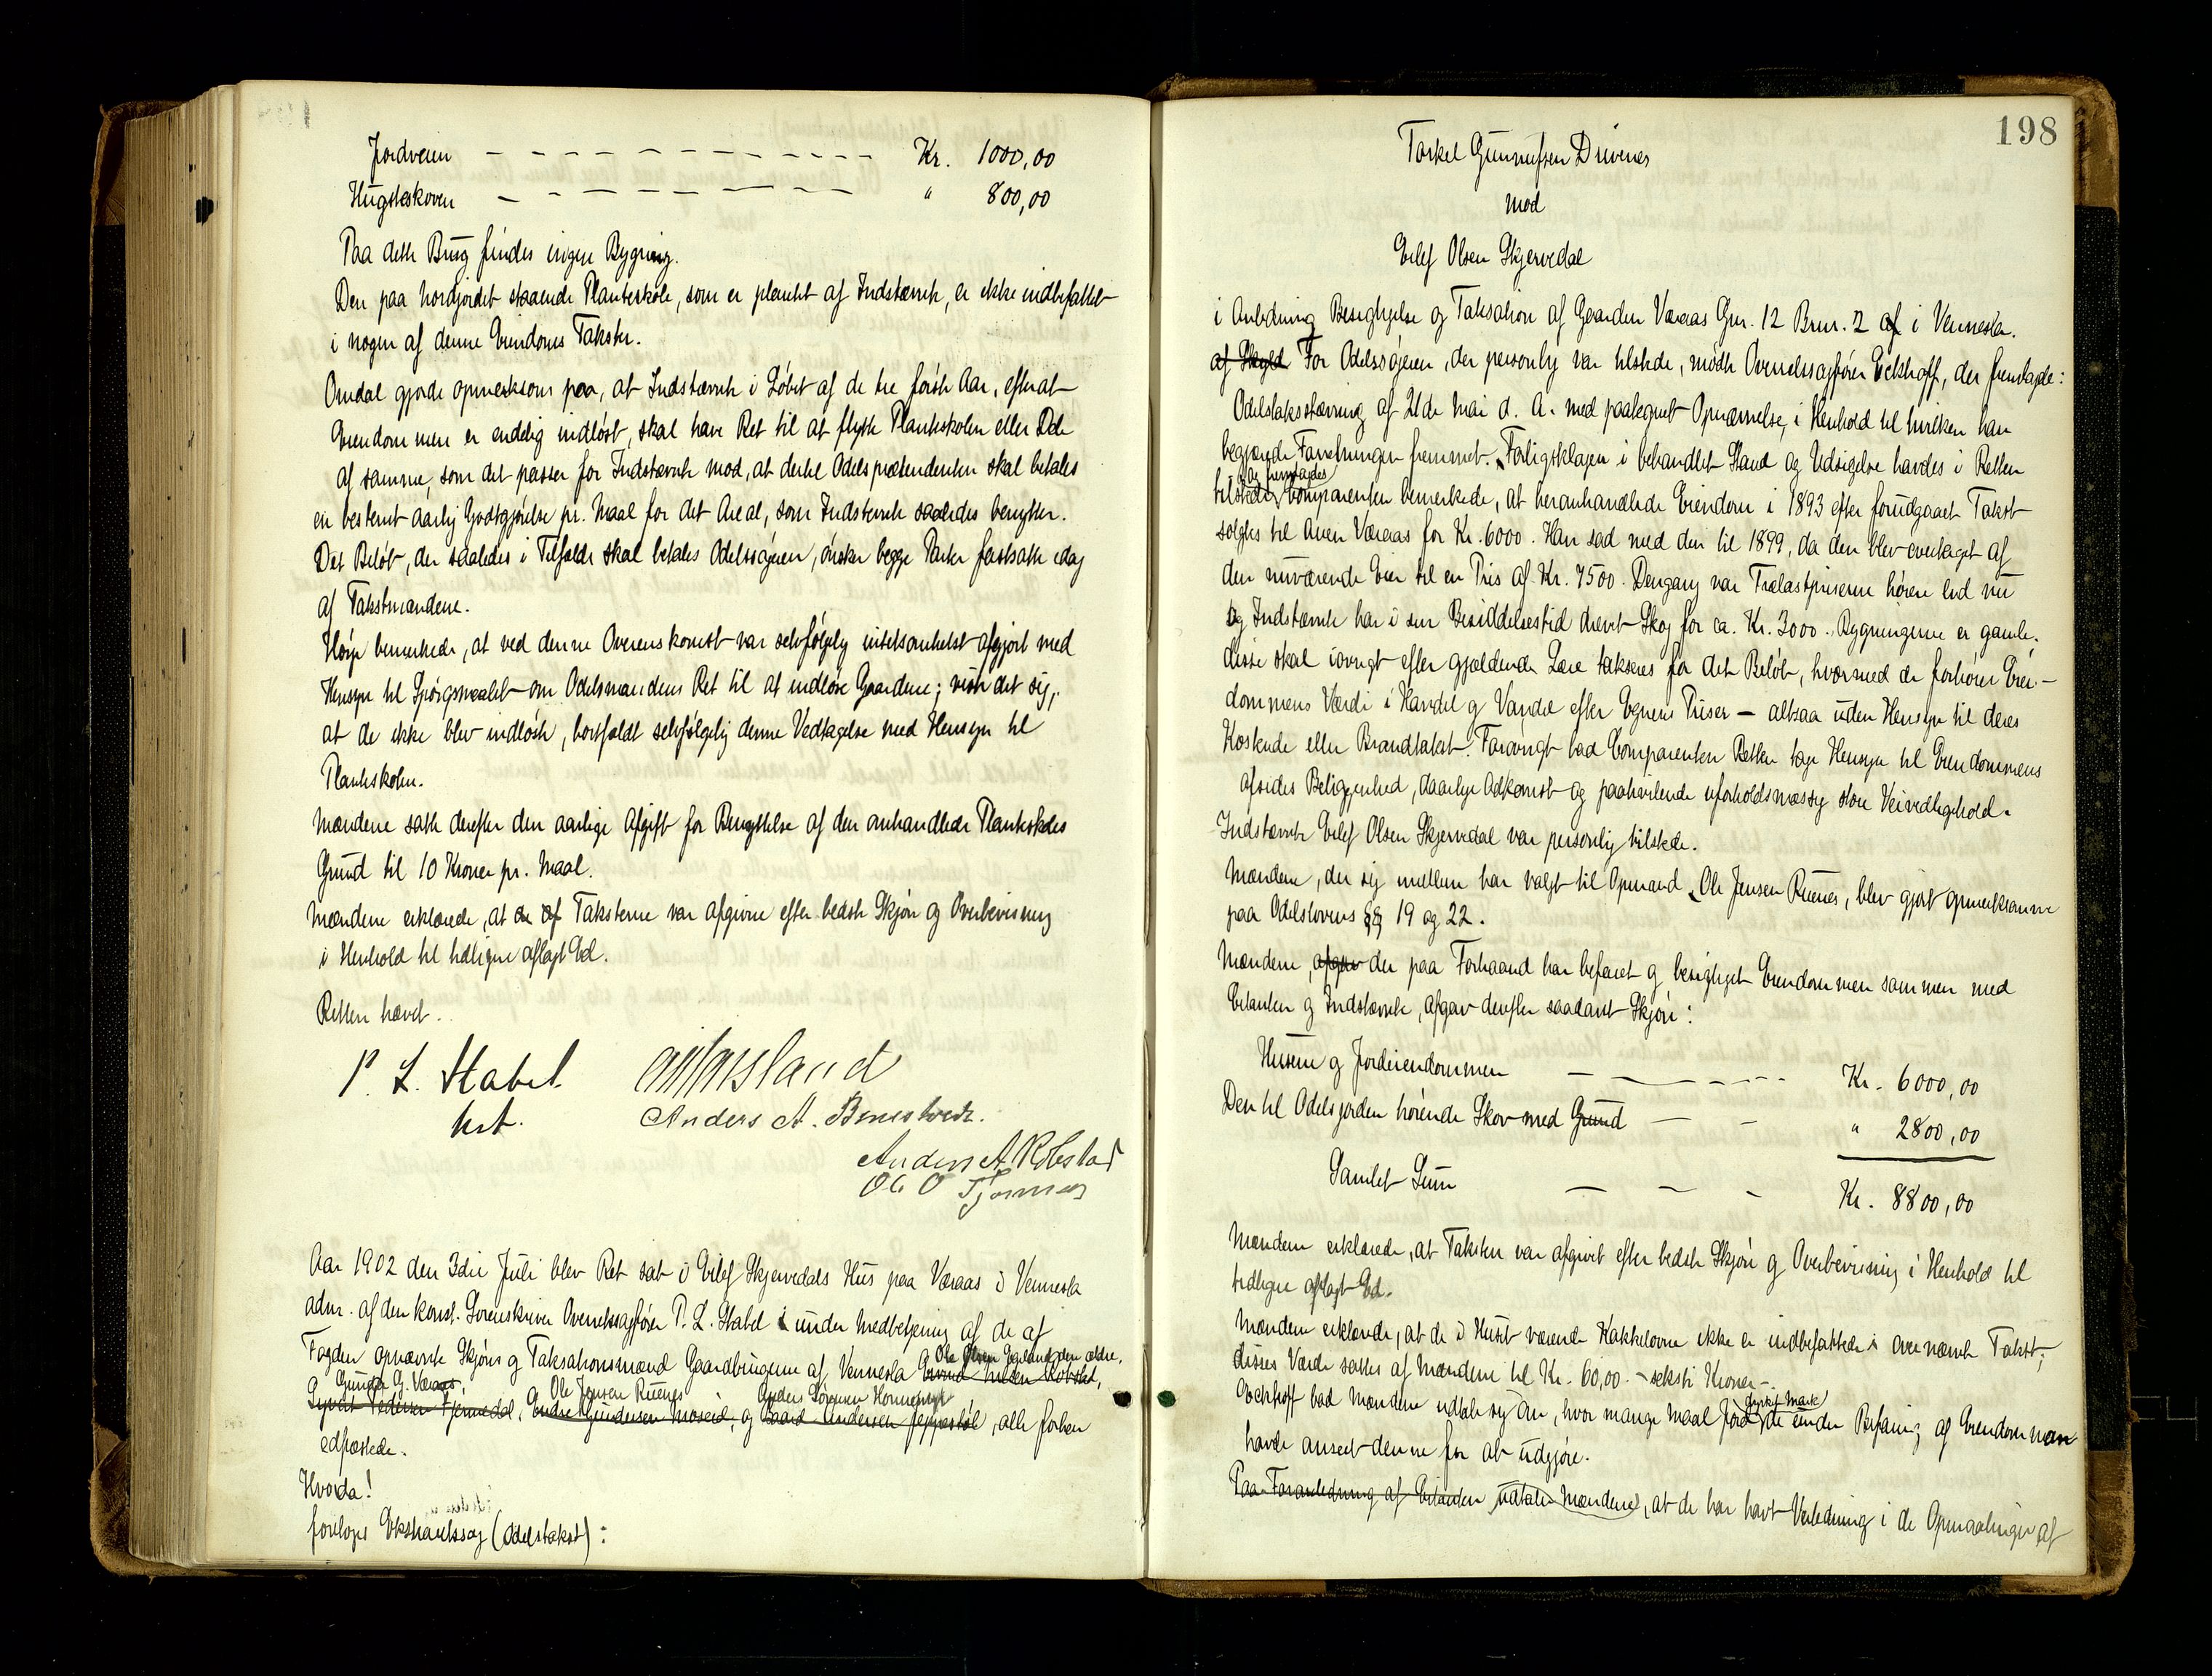 Jordveien — — — — — — — — Kr. 1000,00
Hugstskoven — — — — — — — " 800,00
Paa dette Brug findes ingen Bygning.
Den paa Nordjordet staaende Planteskole, som er plantet af Indstævnte, er ikke indbefattet
i nogen af denne Eiendoms Takster.
Omdal gjorde opmerksom paa, at Indstævnte i Løbet af de tre første Aar, efterat
Eiendommen er endelig indløst, skal have Ret til at flytte Planteskolen eller Dele
af samme, som det passer for Indstævnte mod, at dertil Odelsprætendenten skal betales
en bestemt aarlig Godtgjørelse pr. Maal for det Areal, som Indstævnte saaledes benytter.
Det Beløb, der saaledes i Tilfælde skal betales Odelssøgeren, ønsker begge Parter fastsatte idag
af Takstmændene.
Høije bemerkede, at ved denne Overenskomst var selvfølgelig intetsomhelst afgjort med
Hensyn til Spørgsmaalet om Odelsmandens Ret til at indløse Gaardene; viste det sig,
at de ikke blev indløste, bortfaldt selvfølgelig denne Vedtagelse med Hensyn til
Planteskolen.
Mændene satte derefter den aarlige Afgift for Benyttelse af den omhandlede Planteskoles
Grund til 10 Kroner pr. Maal.
Mændene erklærede, at Taksterne var afgivne efter bedste Skjøn og Overbevisning
i Henhold til tidligere aflagt Ed.
Retten hævet.
P. L. Stabel
kst.
Anders A.
Anders A Robstad
Ole O
Aar 1902 den 3die Juli blev Ret sat i Eilef Skjervedals Hus paa Væraas i Vennesla
adm. af den konst. Sorenskriver Overretssagfører P. L. Stabel under Medbetjening af de af
Fogden opnævnte Skjøns og Taksationsmænd Gaardbrugerne af Vennesla Ole Olsen Egeland den ældre,
Gunder G. Væraas, Ole Jensen Ruenes og Anders Sørensen Honnemyr, alle forhen
edfæstede.
Hvorda!
foretoges Ekstraretssag (Odelstakst):
198
Torkel Gunnufsen Drivenes
mod
Eilef Olsen Skjervedal
i Anledning Besigtigelse og Taksation af Gaarden Væraas Gnr. 12 Brnr. 2 af i Vennesla.
af Skyld For Odelssøgeren, der personlig var tilstede, mødte Overretssagfører Eckhoff, der fremlagde:
Odelstakststævning af 21de Mai d. A. med paategnet Opnævnelse, i Henhold til hvilken han
begjærede Forretningen fremmet. Forligsklagen i behandlet Stand og Udsigelse havdes i Retten
tilstede og fremlagdes Comparenten bemerkede, at heromhandlede Eiendom i 1893 efter forudgaaet Takst
solgtes til Aven Væraas for Kr. 6000. Han sad med den til 1899, da den blev overtaget af
den nuværende Eier til en Pris af Kr. 7500. Dengang var Trælastpriserne høiere end nu
og Indstævnte har i sin Besiddelsestid drevet Skog for ca. Kr. 3000. Bygningerne er gamle.
disse skal iøvrigt efter gjældende Lære takseres for det Beløb, hvormed de forhøier Eien-
dommens Værdi i Handel og Vandel efter Egnens Priser — altsaa uden Hensyn til deres
Kostende eller Brandtakst. Forøvrigt bad Comparenten Retten tage Hensyn til Eiendommens
afsides Beliggenhed, daarlige Adkomst og paahvilende uforholdsmæssig store Veivedligehold.
Indstævnte Eilef Olsen Skjervedal var personlig tilstede.
Mændene, der sig imellem har valgt til Opmand Ole Jensen Ruenes, blev gjort opmerksomme
paa Odelslovens §§ 19 og 22.
Mændene, afgav der paa Forhaand har befaret og besigtiget Eiendommen sammen med
Citanten og Indstævnte, afgav derefter saadant Skjøn:
Husene og Jordeiendommen — — — — — Kr. 6000,00
Den til Odelsjorden hørende Skov med Grund — — " 2800,00
Samlet Sum — — — Kr. 8800,00
Mændene erklærede, at Taksten var afgivet efter bedste Skjøn og Overbevisning i Henhold til
tidligere aflagt Ed.
Mændene erklærede, at de i Huset værende Kakkelovne ikke er indbefattede i overnævnte Takst;
disses Værdi sattes af Mændene til Kr. 60,00 – seksti Kroner –.
Eckhoff bad Mændene udtale sig om, hvor mange Maal Jord dyrket Mark de under Befaring af Eiendommen
havde anseet denne for at udgjøre.
Paa Foranledning af Citanten udtalte Mændene, at de har havt Veiledning i de Opmaalinger af